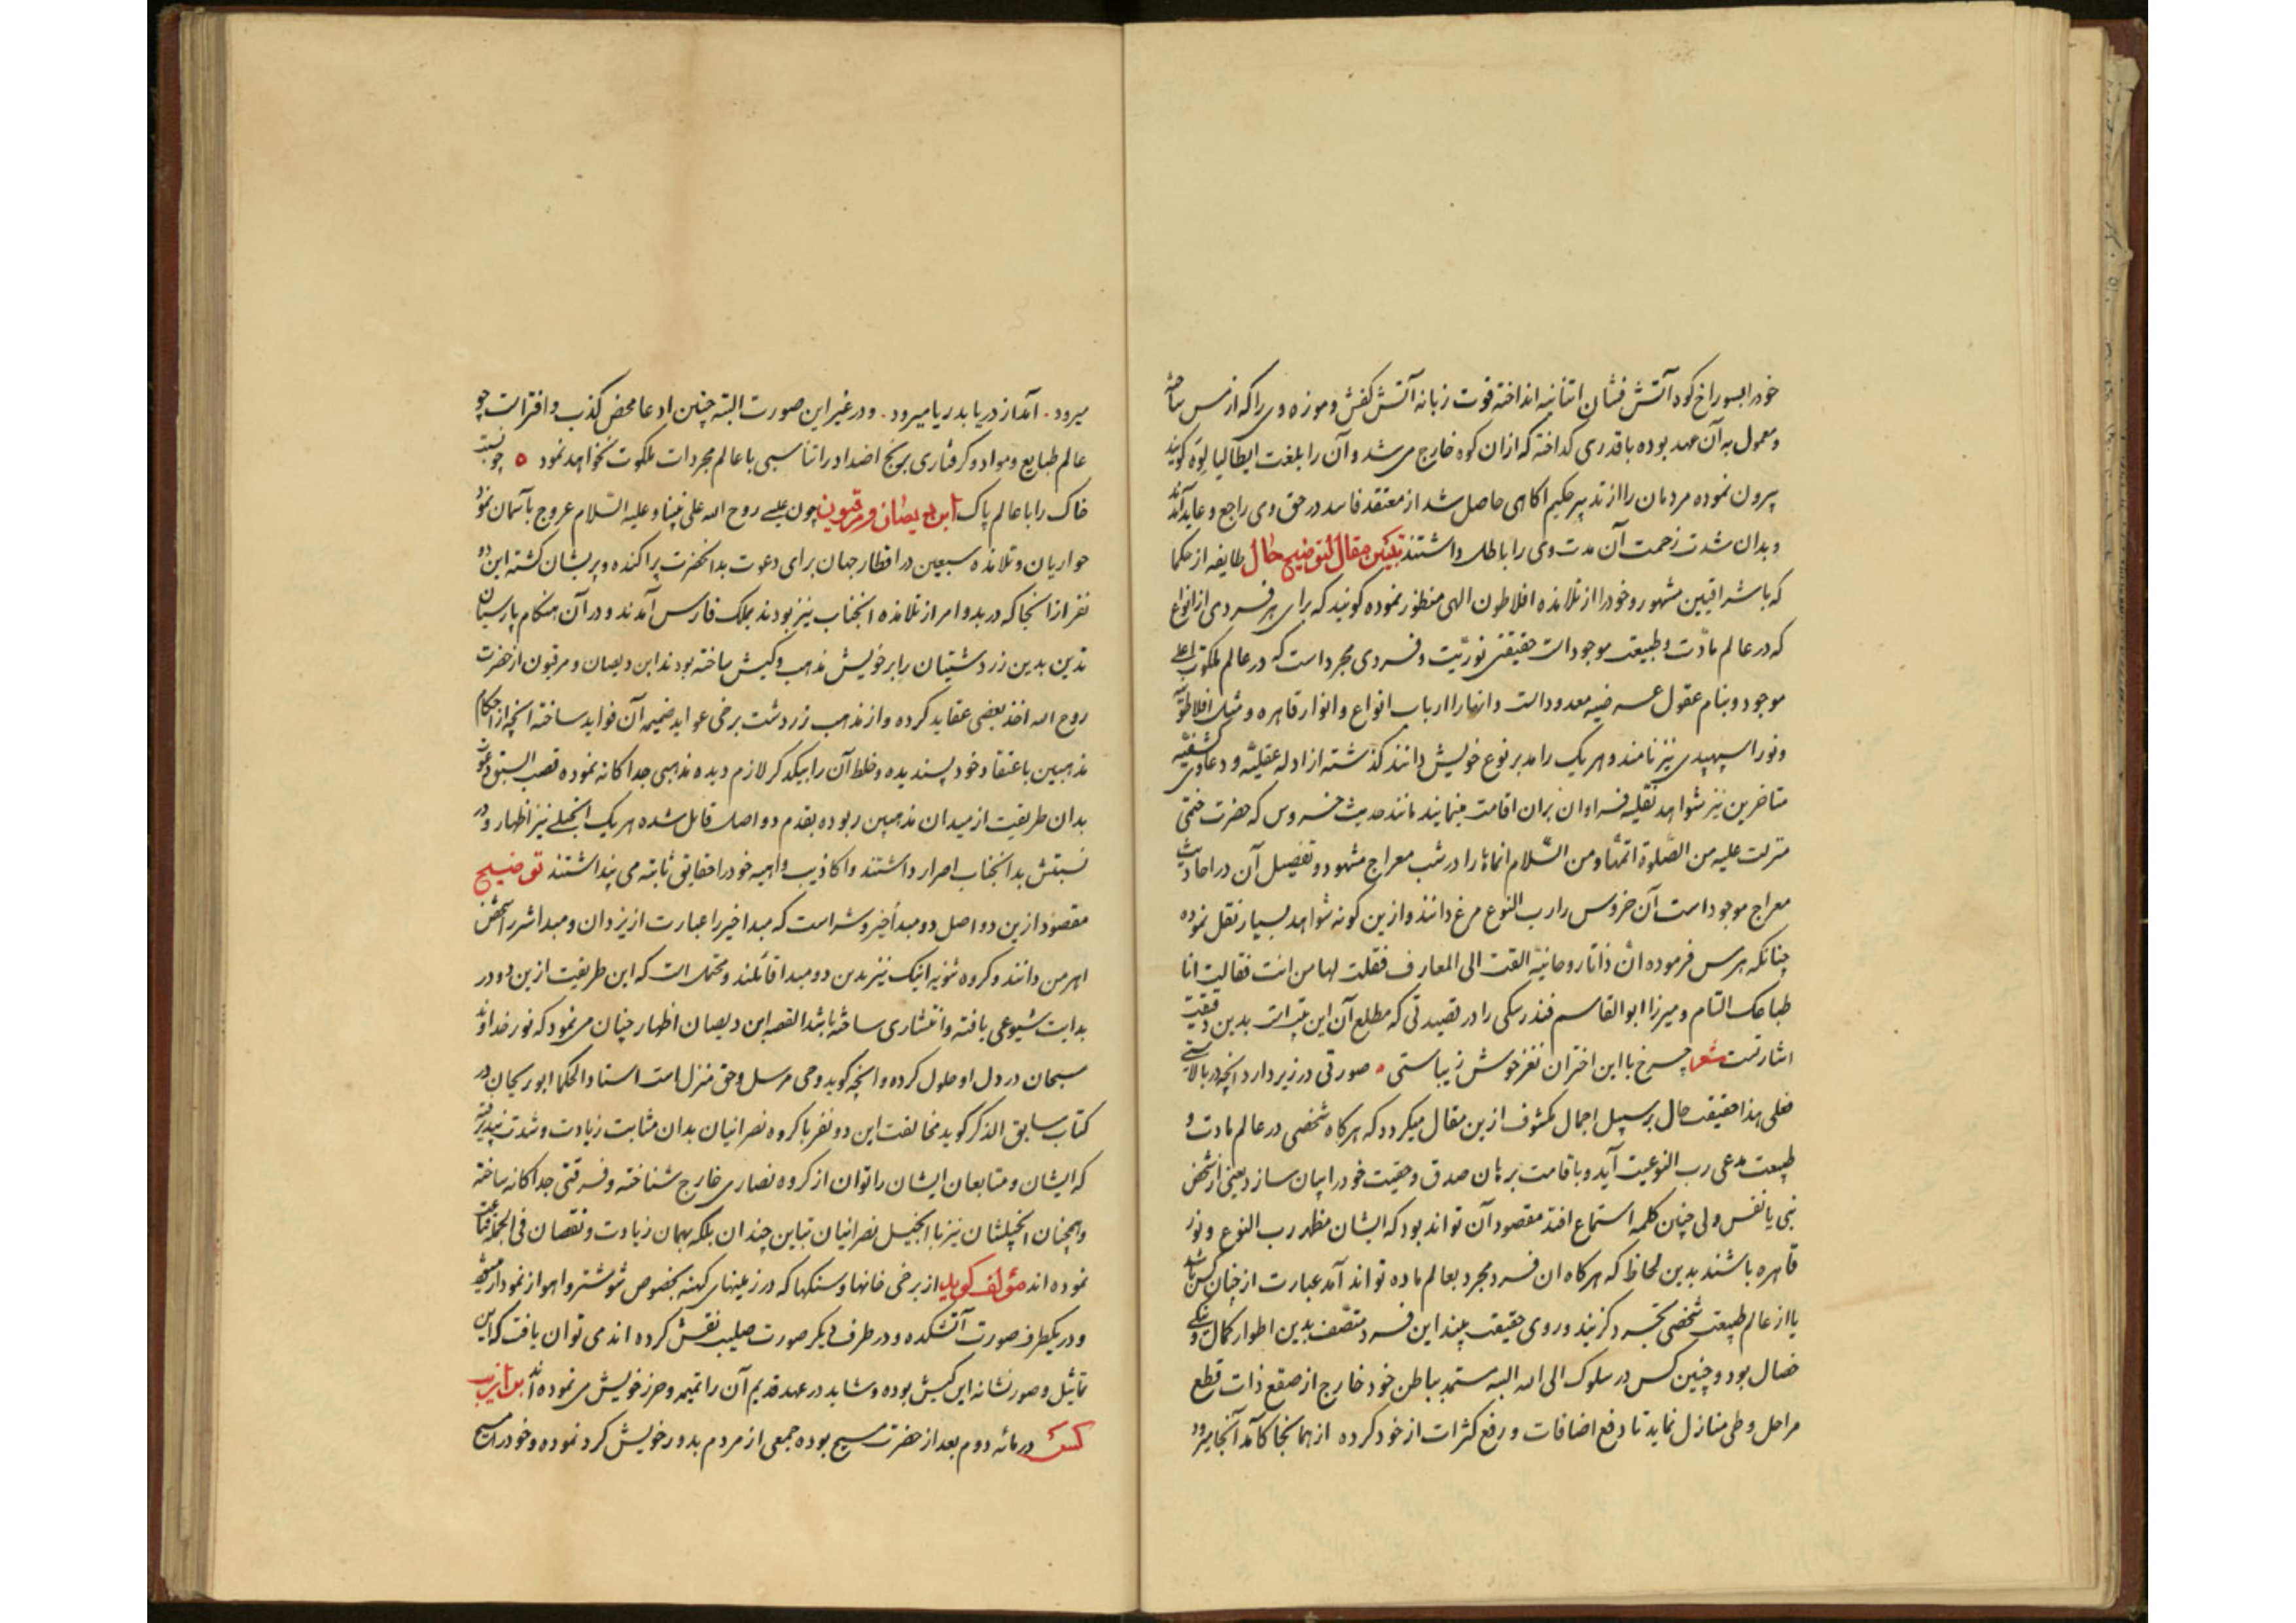 خود را بسوراخ کوه آتش فشان اتنانیه انداخته قوت زبانه آتش کفش و موزه وی را که از مس ساخته
و معمول به آن عهد بوده باقدری کداخته که ازان کوه خارج می شد و آن را بلغت ایطالیا لوه کویند
بیرون نموده مردمان را از تدبیر حکیم اکاهی حاصل شد از معتقد فاسد در حق وی راجع و عاید آمدند
و بدان شدت زحمت آن مدت وی را باطل داشتند تبیین مقال لتوضیح حال طایفه از حکما
که باشراقیین مشهور و خود را از تلامذه افلاطون الهی منظور نموده کویند که برای هر فردی از انواع
که در عالم مادّت و طبیعت موجود است حقیقتی نوریّت و فردی مجرد است که در عالم ملکوت اعلی
موجود و بنام عقول عرضیه معدود است و انها را ارباب انواع و انوار قاهره و مثل افلاطونیه
و نور اسپهبدی نیز نامند و هر یک را مدبر نوع خویش دانند کذشته از ادله عقلیّه و دعاوی کشفیّه
متاخرین نیز شواهد نقلیه فراوان بران اقامت مینمایند مانند حدیث خروس که حضرت ختمی
منزلت علیه من الصّلوة اتمّها و من السّلام انماها را در شب معراج مشهود و تفصیل آن در احادیث
معراج موجود است آن خروس را رب النوع مرغ دانند و ازین کونه شواهد بسیار نقل نموده
چنانکه هرمس فرموده انّ ذاتا روحانیّه القت الی المعارف فقلت لها من انت فقالت انا
طباعک التام و میرزا ابوالقاسم فندرسکی را در قصیدتی که مطلع آن این بیت است بدین دقیقت
اشارتست شعر چرخ با این اختران نغز خوش زیباستی ٠ صورتی در زیر دارد انچه در بالاستی
فعلی هذا حقیقت حال بر سبیل اجمال مکشوف ازین مقال میکردد که هرکاه شخصی در عالم مادت و
طبیعت مدعی رب النوعیت آید و باقامت برهان صدق و حقیت خود را بیان سازد یعنی از شخص
نبی یا نفس ولی چنین کلمه استماع افتد مقصود آن تواند بود که ایشان مظهر رب النوع و نور
قاهره باشند بدین لحاظ که هرکاه ان فرد مجرد بعالم ماده تواند آمد عبارت از چنان کس باشد
یا از عالم طبیعت شخصی تجرد کزیند و روی حقیقت بیند این فرد متصّف بدین اطوار کمال و نیکی
خصال بود و چنین کس در سلوک الی الله البته مستمد بباطن خود خارج از صقع ذات قطع
مراحل و طی منازل نماید تا دفع اضافات و رفع کثرات از خود کرده از همانجا کامد آنجا میرود
میرود ٠ آمد از دریا بدریا میرود ٠ و در غیر این صورت البته چنین ادعا محض کذب و افتراست چو
عالم طبایع و مواد و کرفتاری برنج اضداد را تناسبی با عالم مجردات ملکوت نخواهد نمود ٥ چو نسبت
خاک را با عالم پاک ابن دیصان و مرقیون چون عیسی روح الله علی نبینا و علیه السّلام عروج بآسمان نمود
حواریان و تلامذه سبعین در اقطار جهان برای دعوت بدانحضرت پراکنده و پریشان کشته این دو
نفر ازانجا که در بدو امر از تلامذه انجناب نیز بودند بملک فارس آمدند و در آن هنکام پارسیان
تدین بدین زردشتیان را بر خویش مذهب و کیش ساخته بودند ابن دیصان و مرقیون از حضرت
روح الله اخذ بعضی عقاید کرده و از مذهب زردشت برخی عواید ضمیمه آن فواید ساخته انچه از احکام
مذهبین باعتقاد خود پسندیده و خلط آن را بیکدکر لازم دیده مذهبی جداکانه نموده قصب السبق دعوت
بدان طریقت از میدان مذهبین ربوده بقدم دو اصل قایل شده هر یک انجیلی نیز اظهار و در
نسبتش بدانجناب اصرار داشتند و اکاذیب واهیه خود را حقایق ثابته می پنداشتند توضیح
مقصود ازین دو اصل دو مبدأ خیر و شر است که مبدا خیر را عبارت از یزدان و مبدا شر را شخص
اهرمن دانند و کروه ثنویه اینک نیز بدین دو مبدا قائلند و محتمل است که این طریقت ازین دو در
بدایت شیوعی یافته و انتشاری ساخته باشد القصه ابن دیصان اظهار چنان می نمود که نور خداوند
سبحان در دل او حلول کرده و انچه کوید وحی مرسل و حق منزل است استاد الحکما ابوریحان در
کتاب سابق الذکر کوید مخالفت این دو نفر با کروه نصرانیان بدان مثابت زیادت و شدت نپذیرفته
که ایشان و متابعان ایشان را توان از کروه نصاری خارج شناخته و فرقتی جداکانه ساخته
و همچنان انجیلشان نیز با انجیل نصرانیان تباین چندان بلکه بهمان زیادت و نقصان فی الجمله قناعت
نموده اند مؤلف کوید از برخی خانها و سنکها که در زمینهای کهنه بخصوص شوشتر و اهواز نمودار میشود
و در یکطرف صورت آتشکده و در طرف دیکر صورت صلیب نقش کرده اند می توان یافت که این
تماثیل و صور نشانه این کیش بوده و شاید در عهد قدیم آن را تمیمه و حرز خویش می نموده اند
در مائه دوم بعد از حضرت مسیح بوده جمعی از مردم بدور خویش کرد نموده و خود را مسیح